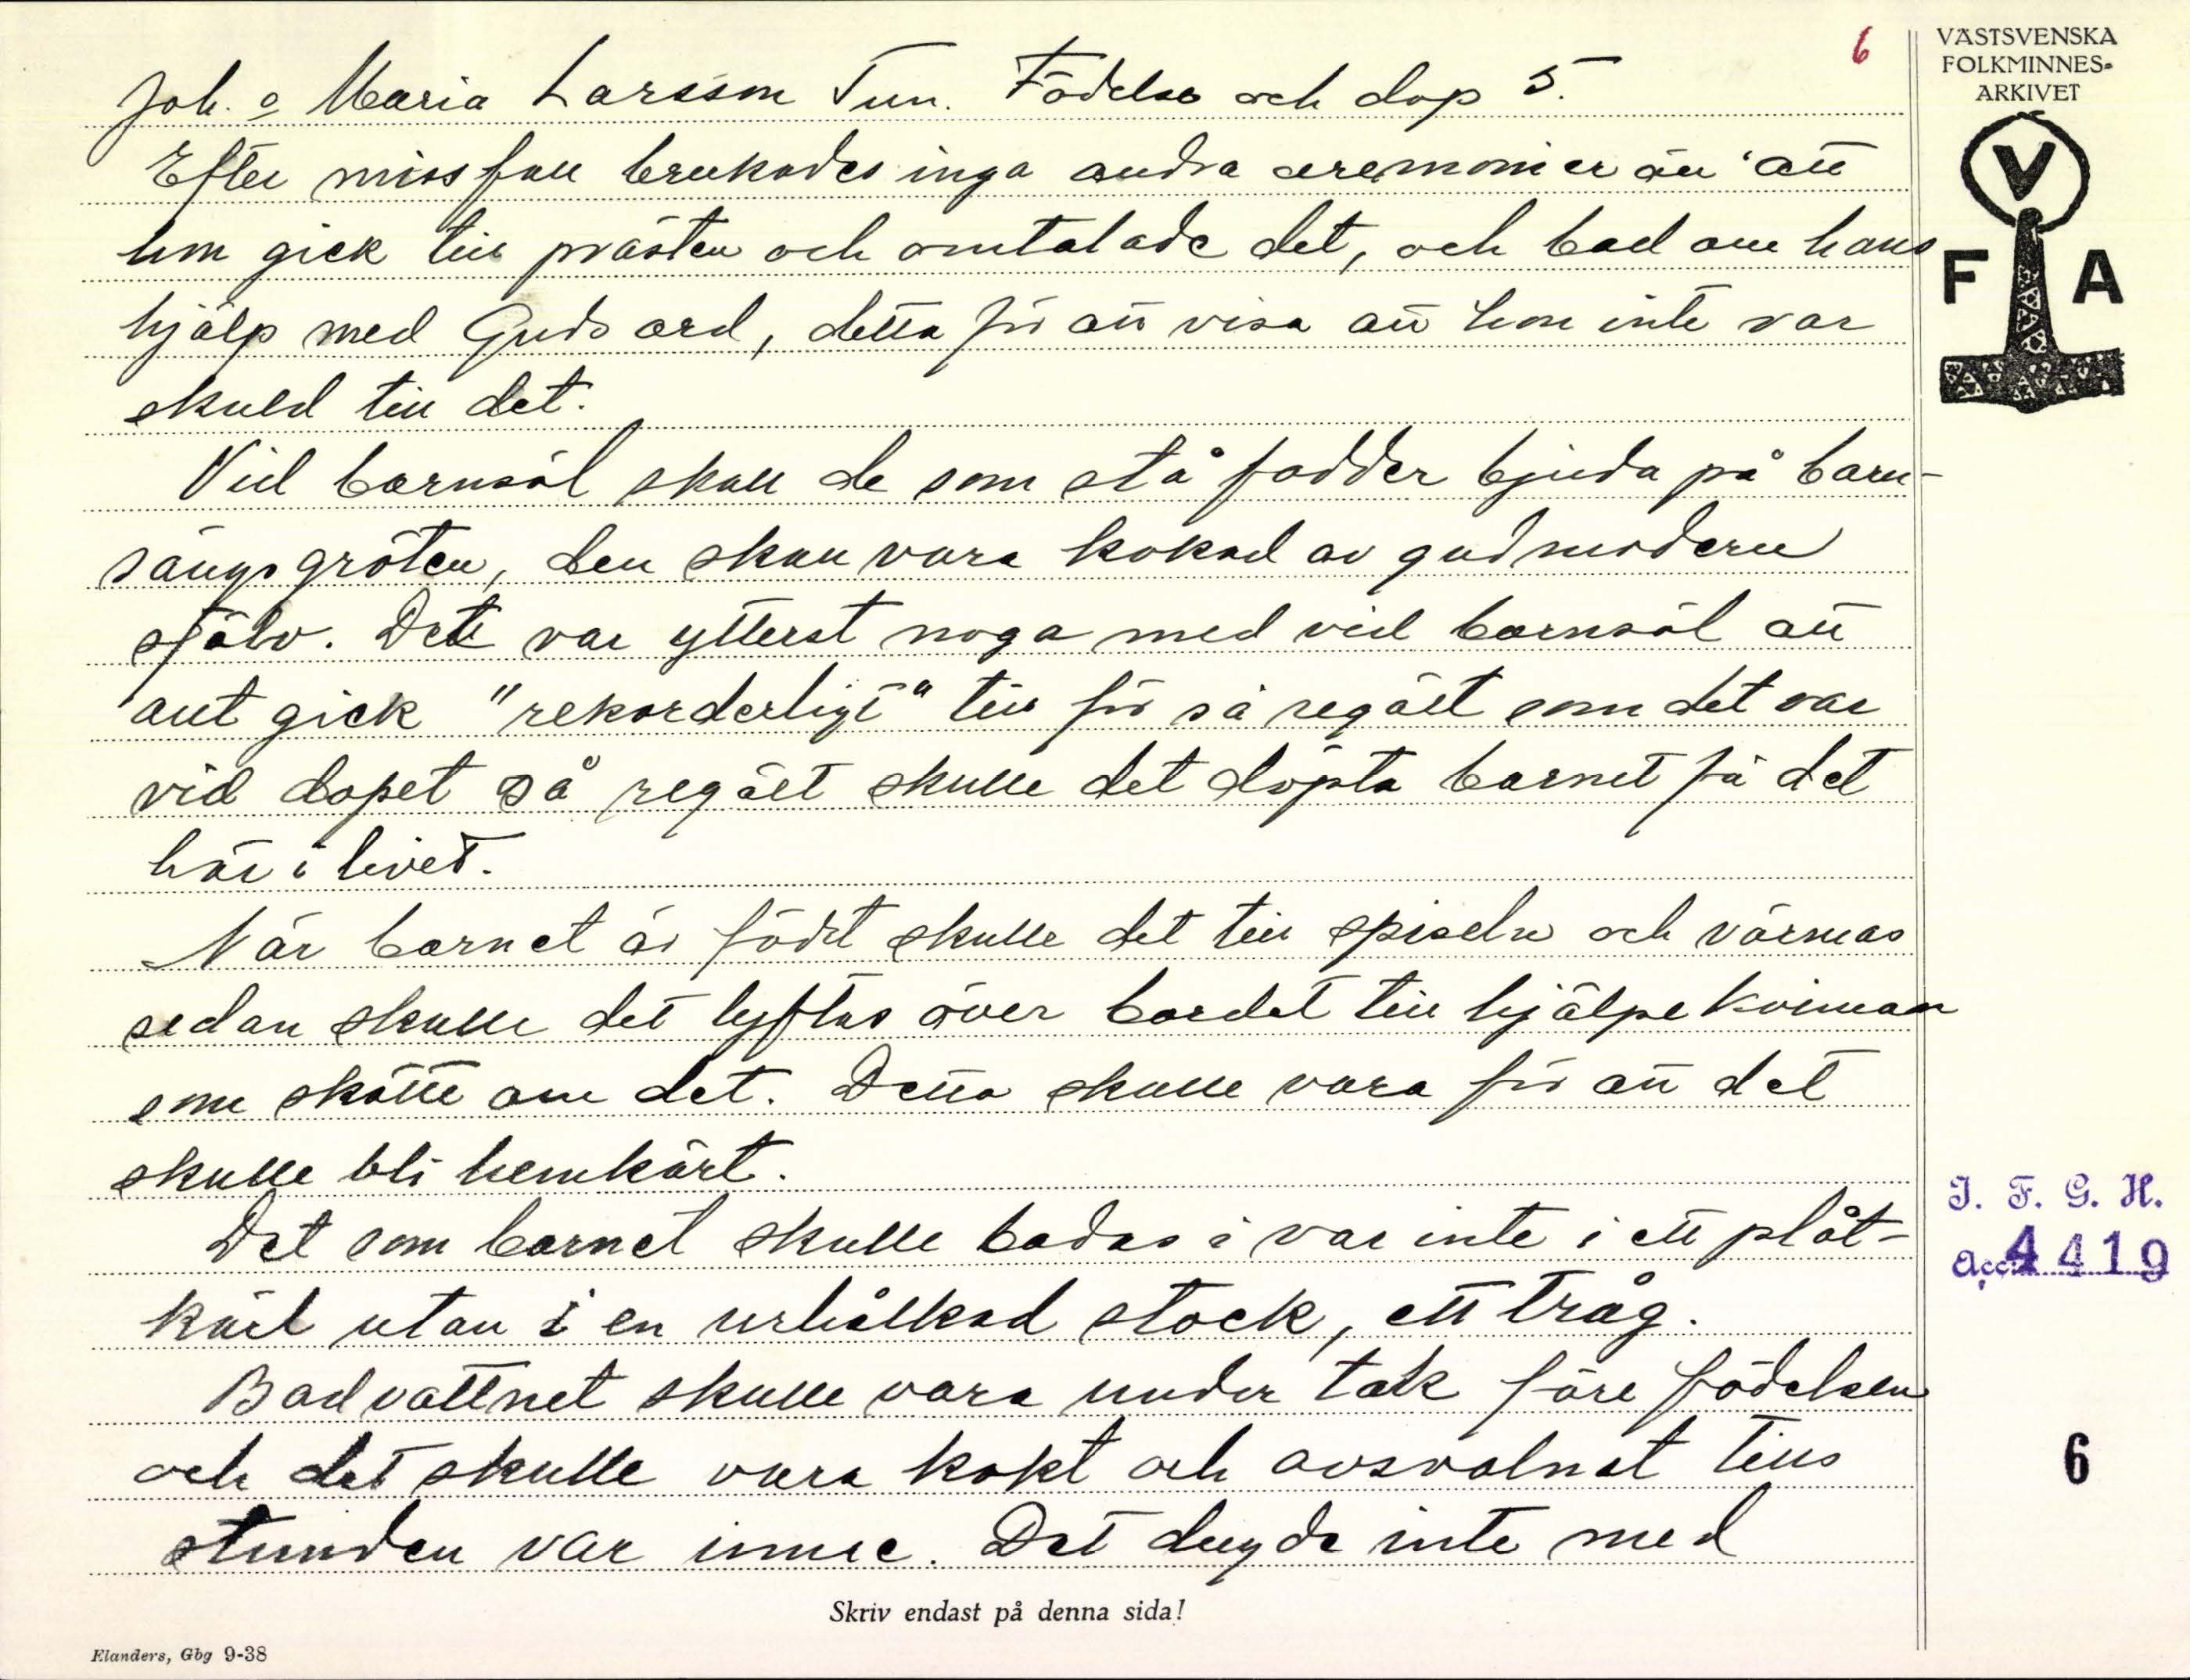 6
VÄSTSVENSKA
FOLKMINNES-
ARKIVET
V
F A
Joh. o Maria Larsson Tun. Födelse och dop 5.
Efter missfall brukades inga andra ceremonier än att
hon gick till prästen och omtalade det, och bad om hans
hjälp med Guds ord, detta för att visa att hon inte var
skuld till det.
Vid barnsöl skall de som stå fadder bjuda på barn-
sängsgröten, den skall vara kokad av gudmodern
själv. Det var ytterst noga med vid barnsöl att
allt gick "rekorderligt" till för så regält som det var
vid dopet så regält skulle det döpta barnet få det
här i livet.
När barnet är födt skulle det till spiseln och värmas
sedan skulle det lyftas över bordet till hjälpekvinnan
som skötte om det. Detta skulle vara för att det
skulle bli hemkärt.
Det som barnet skulle badas i var inte i ett plåt-
kärl utan i en urhålkad stock, ett tråg.
Badvattnet skulle vara under tak före födelsen
och det skulle vara kokt och avsvalnat tills
stunden var inne. Det dugde inte med
I. F. G. H.
Acc. 4419
6
Skriv endast på denna sida!
Elanders, Gbg 9-38